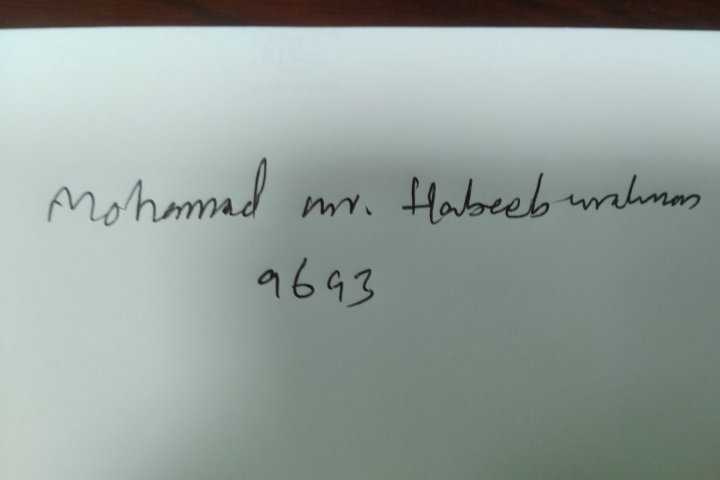 Mohammad mr. Habeeburahman
9693